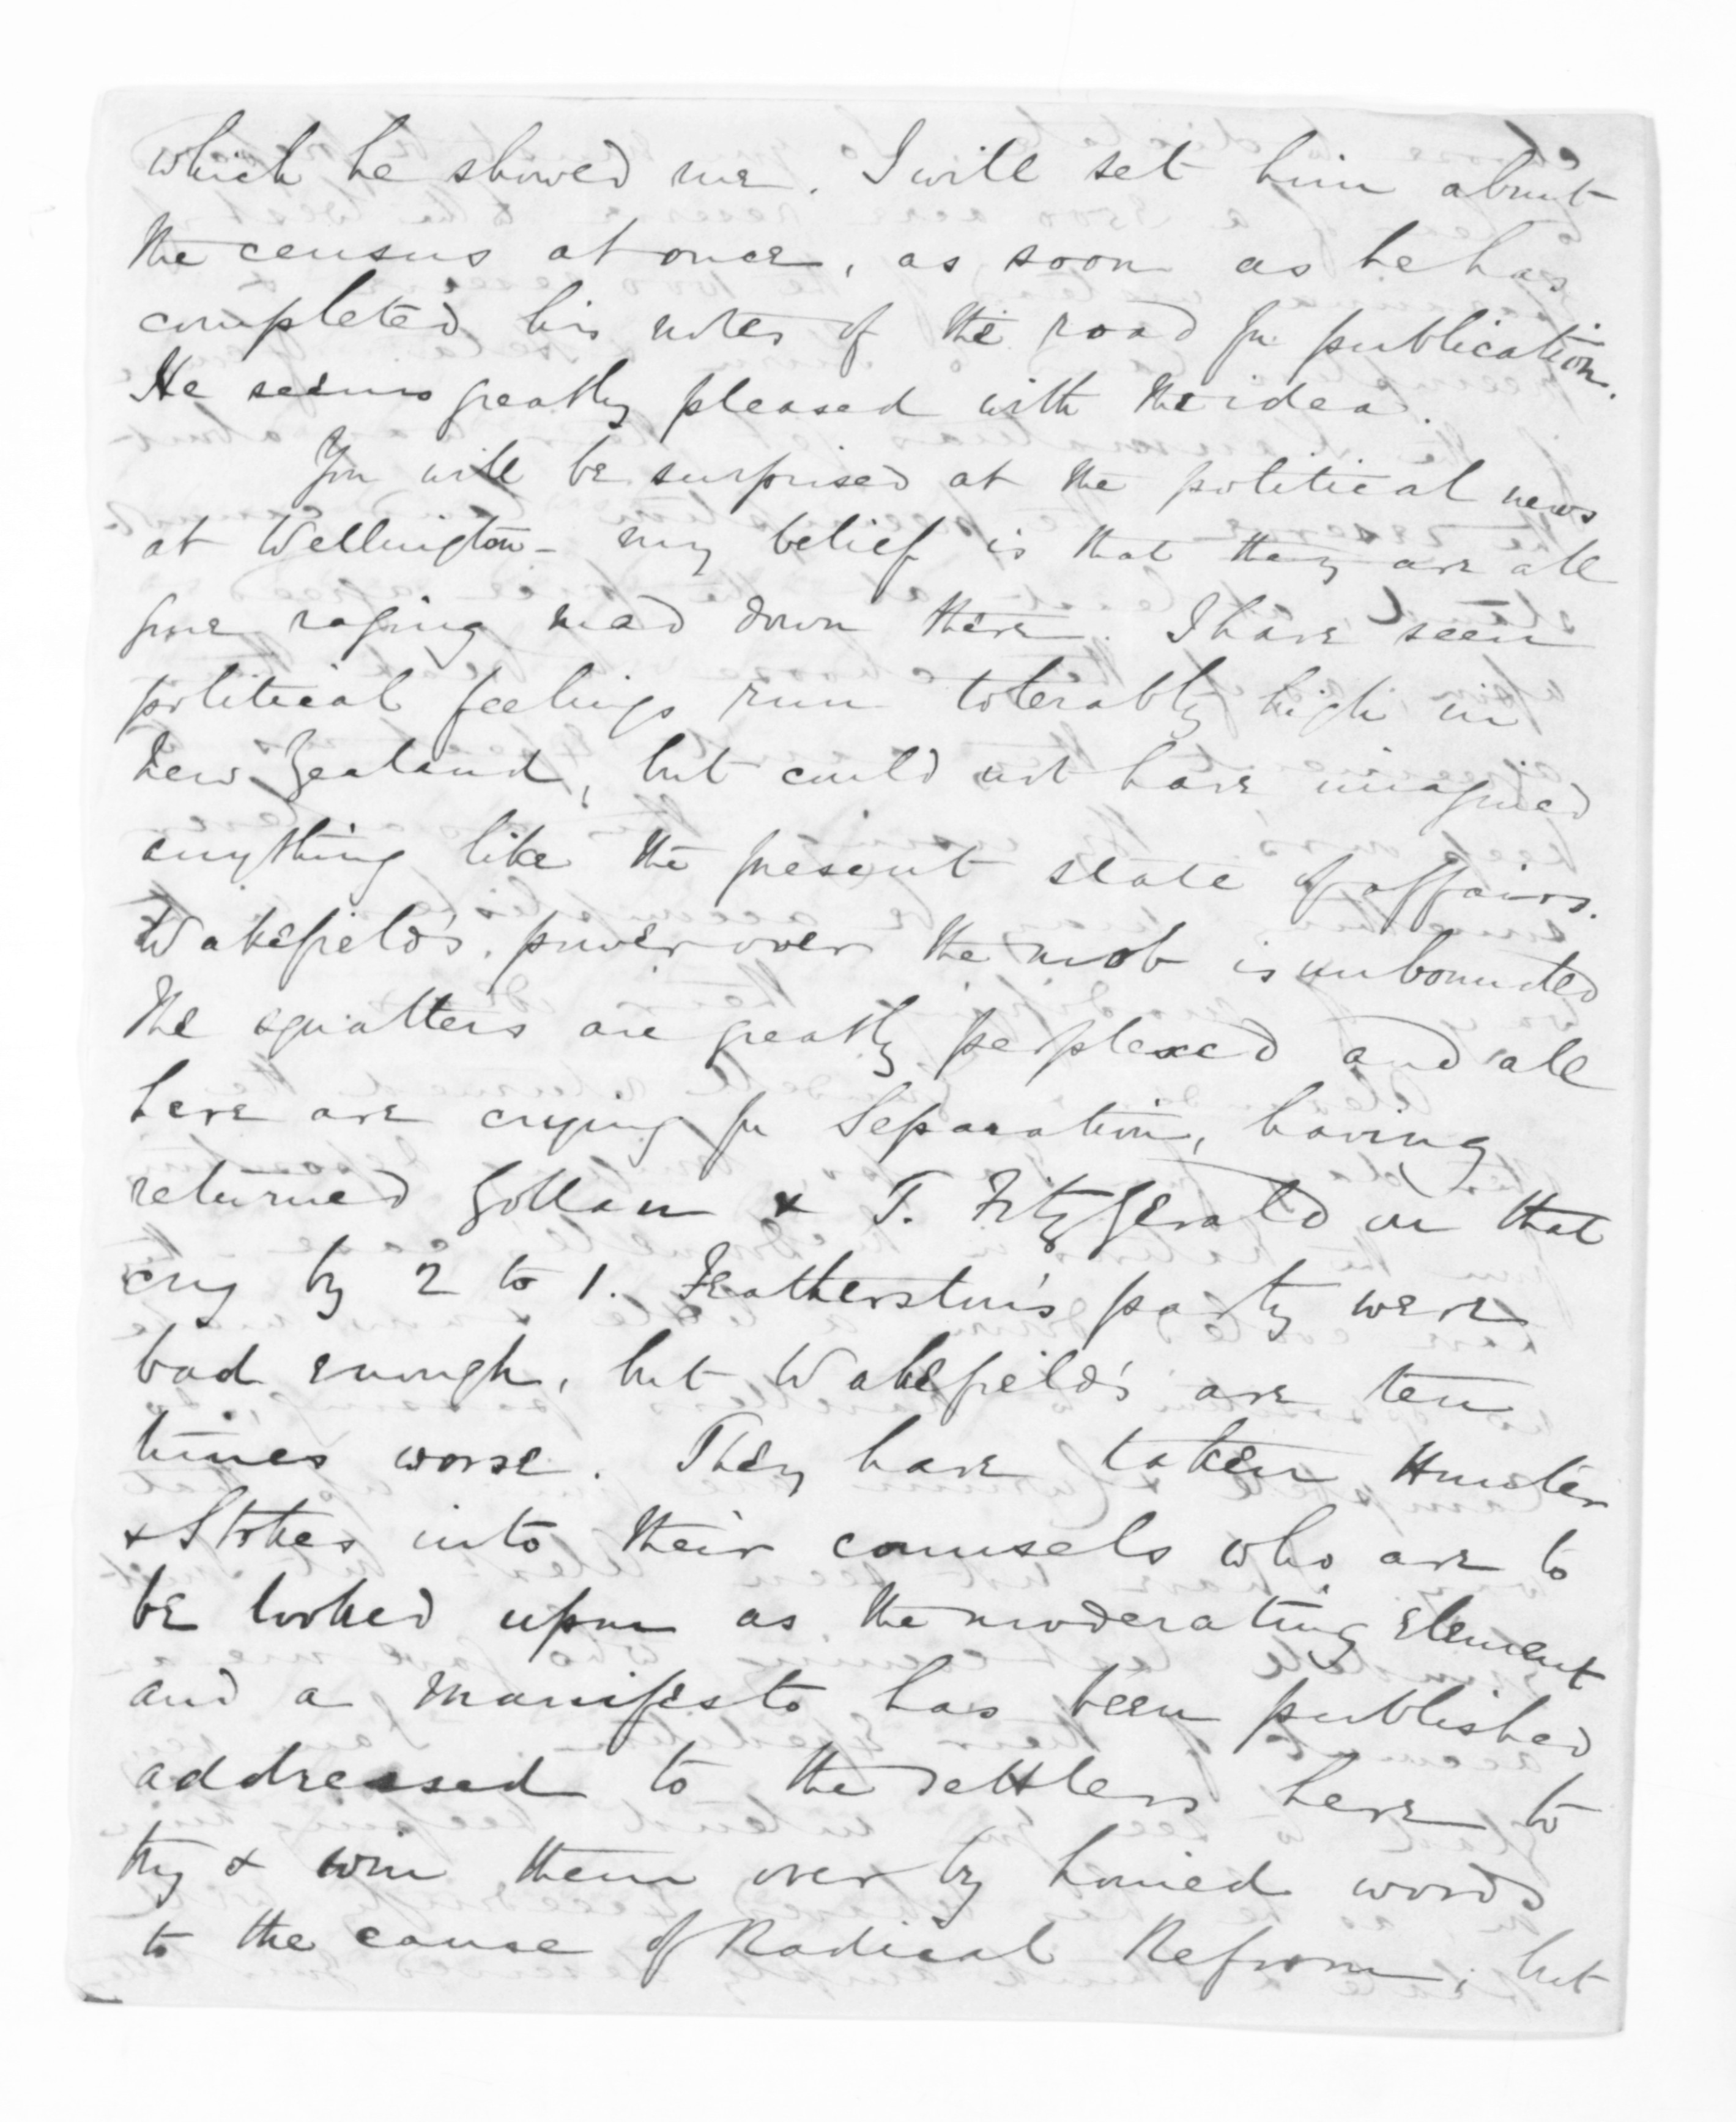 which he showed me. I will set him about
the census at once, as soon as he has
completed his notes of the road for publication.
He seems greatly pleased with the idea.
You will be surprised at the political news
at Wellington - my belief is that they are all
gone raging mad down there. I have seen
political feelings run tolerably high in
New Zealand, but could not have imagined
anything like the present state of affairs.
Wakefield's power over the mob is unbounded
The squatters are greatly perplexed and all
here are crying for Separation, having
returned Gollan & T. FitzGerald on that
cry by 2 to 1. Featherston's party were
bad enough, but Wakefield's are ten
times worse. They have taken Hunter
& Stokes into their counsels who are to
be looked upon as the moderating element
and a manifesto has been published
addressed to the settlers here to
try & win them over by honied words
to the cause of Radical Reform; but